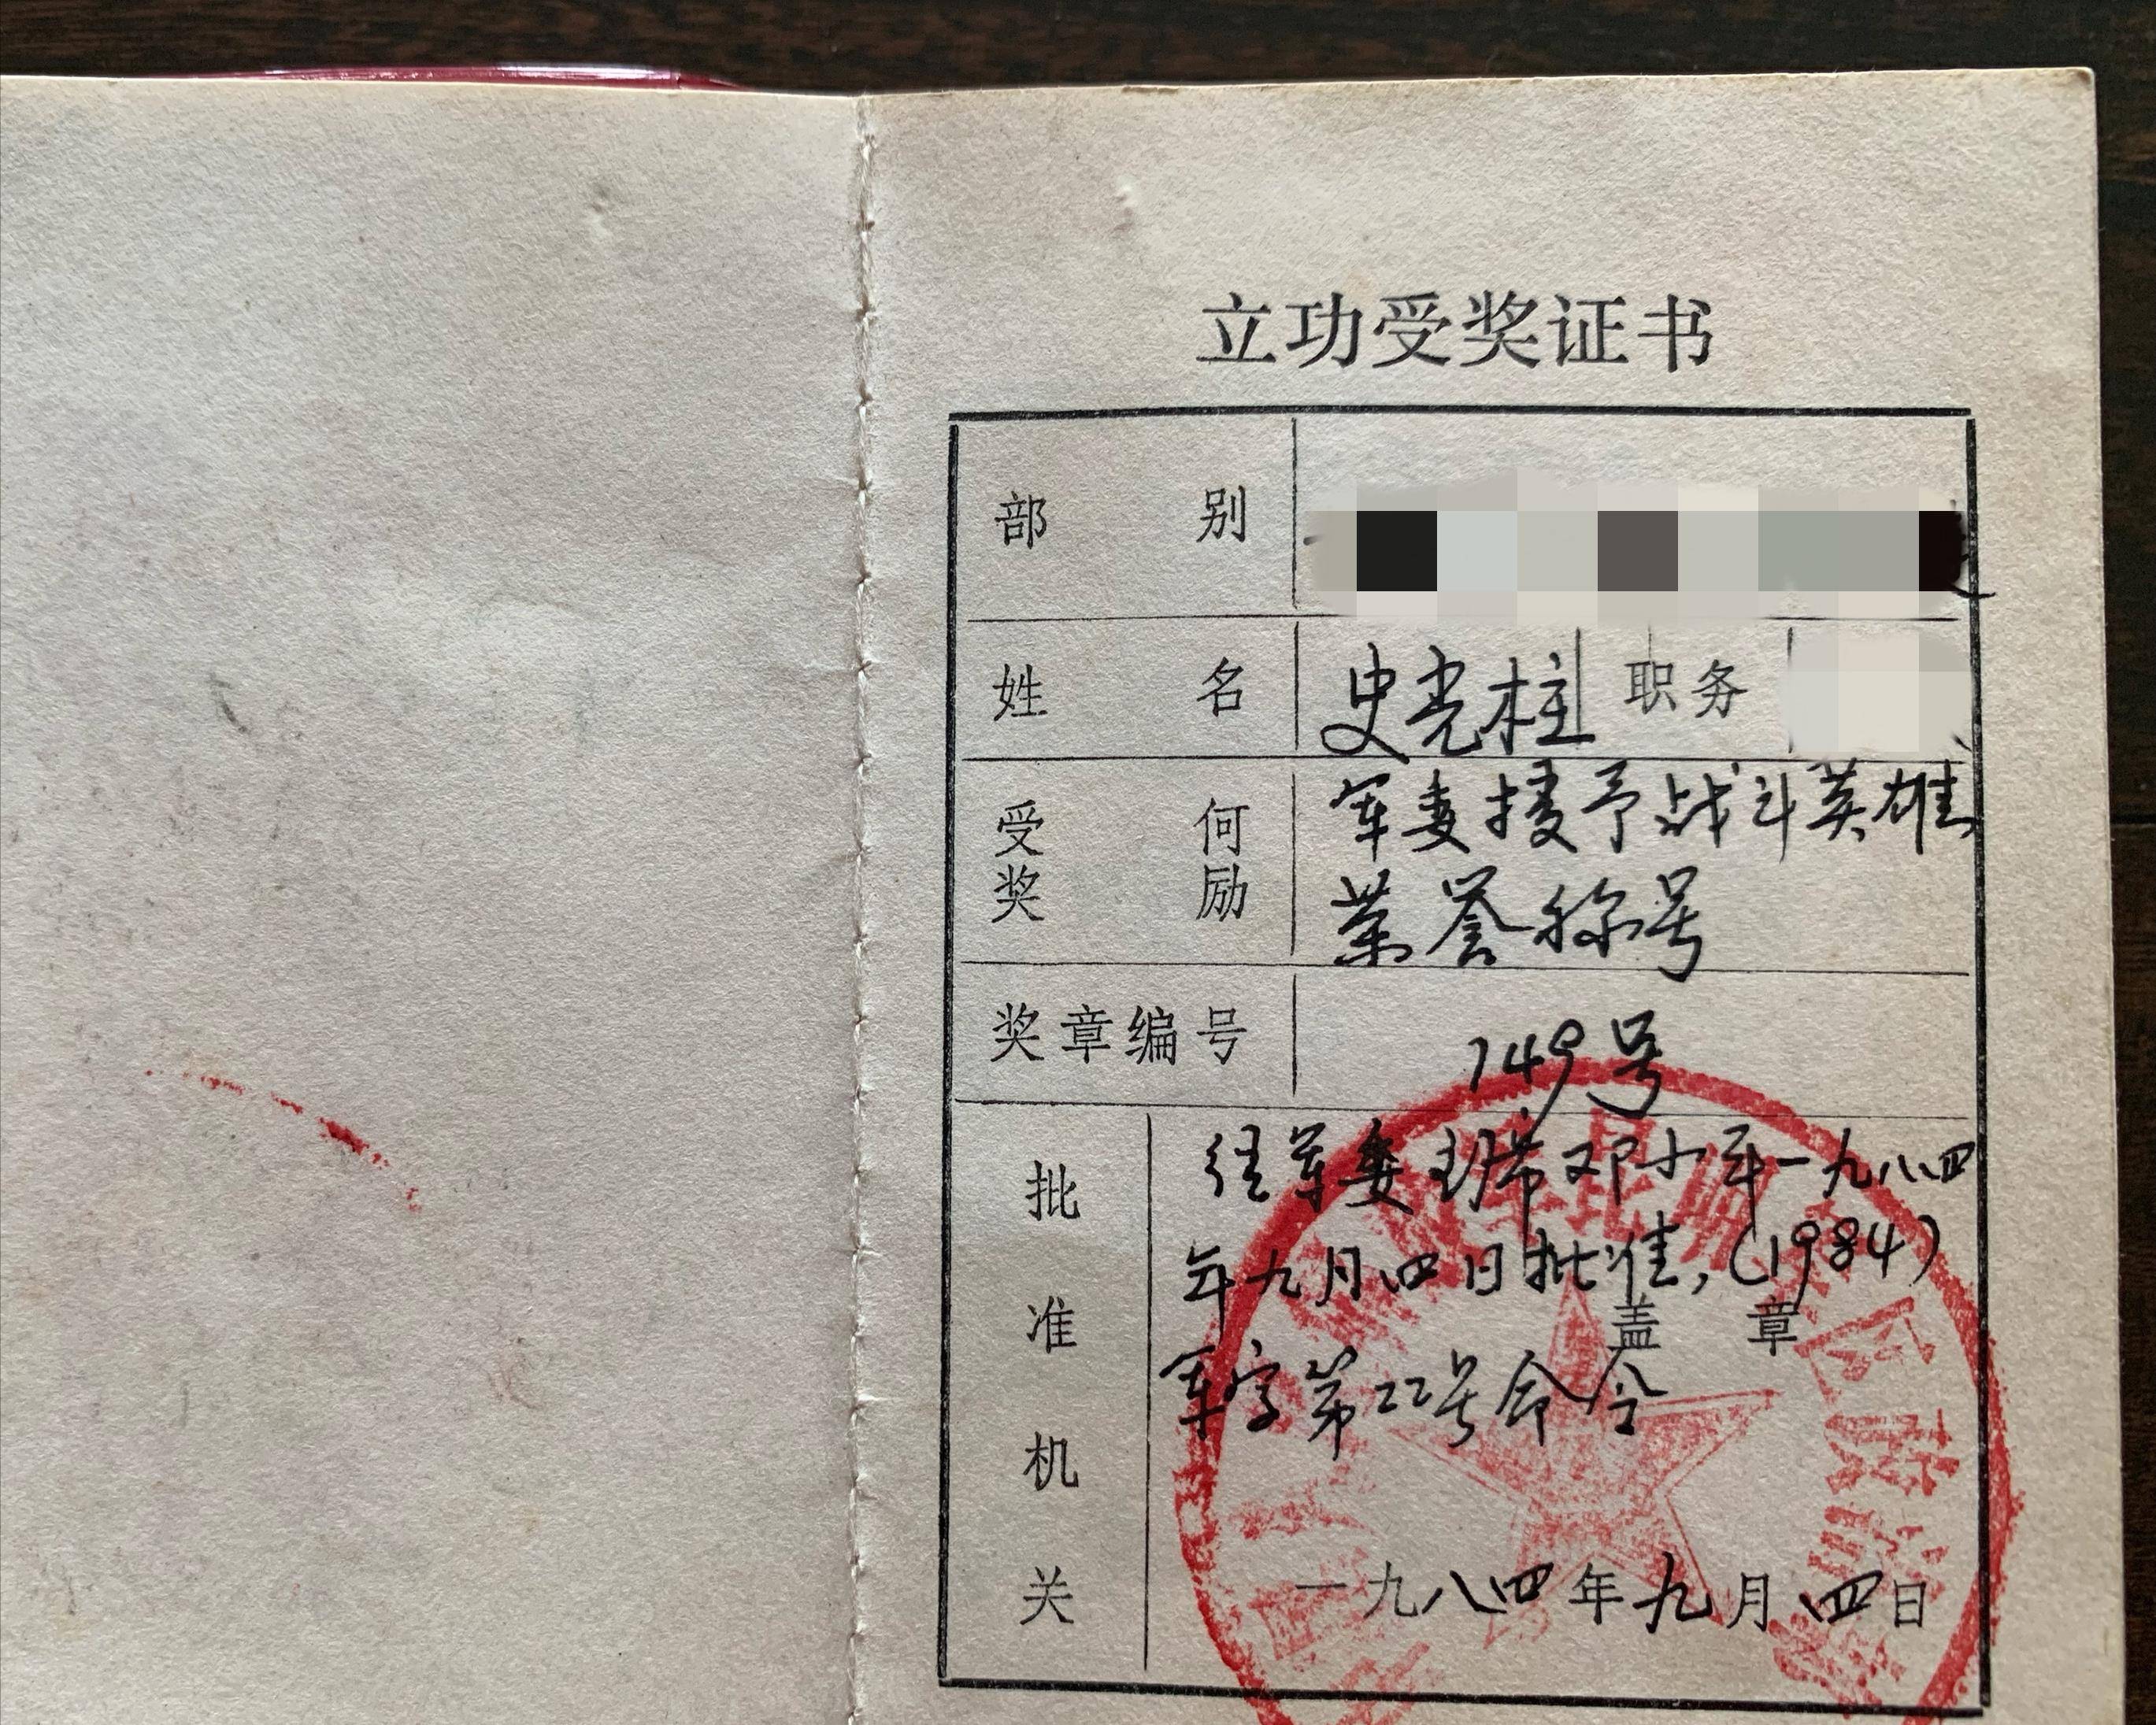 立功受奖证书
部别
姓名 史光柱 职务
受何奖励 军委授予战斗英雄
荣誉称号
奖章编号 149号
批准机关 经军委主席邓小平一九八四
年九月四日批准,(1984)
盖章
军字第22号命令
一九八四年九月四日